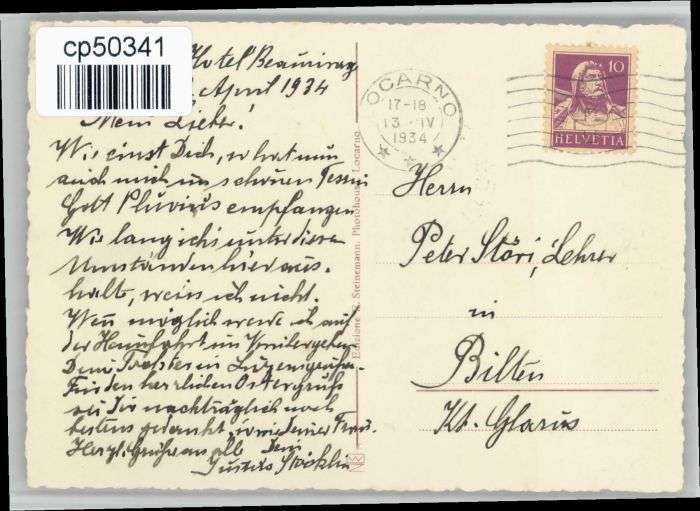 cp50341
Hotel Beaurivage
April 1934
Mein Lieber!
Wie einst Dich, so hat nun
auch mich im schönen Tessin
Gott Pluvius empfangen
Wie lang ich's unter diesen
Umständen hier aus-
halte, weiss ich nicht.
Wenn möglich werde ich auf
der Heimfahrt im
Dein in Luzern
Für den herrlichen Ostergruss
sei Dir nachträglich noch
bestens gedankt, sowie Deiner Frau.
Herzl. Grüsse an alle Dein
Stöcklin
Edizione G. Steinemann, Photohaus, Locarno
OCARNO
17-18
13 IV
1934
10
HELVETIA
Herrn
Peter Störi, Lehrer
in
Bilten
Kt. Glarus